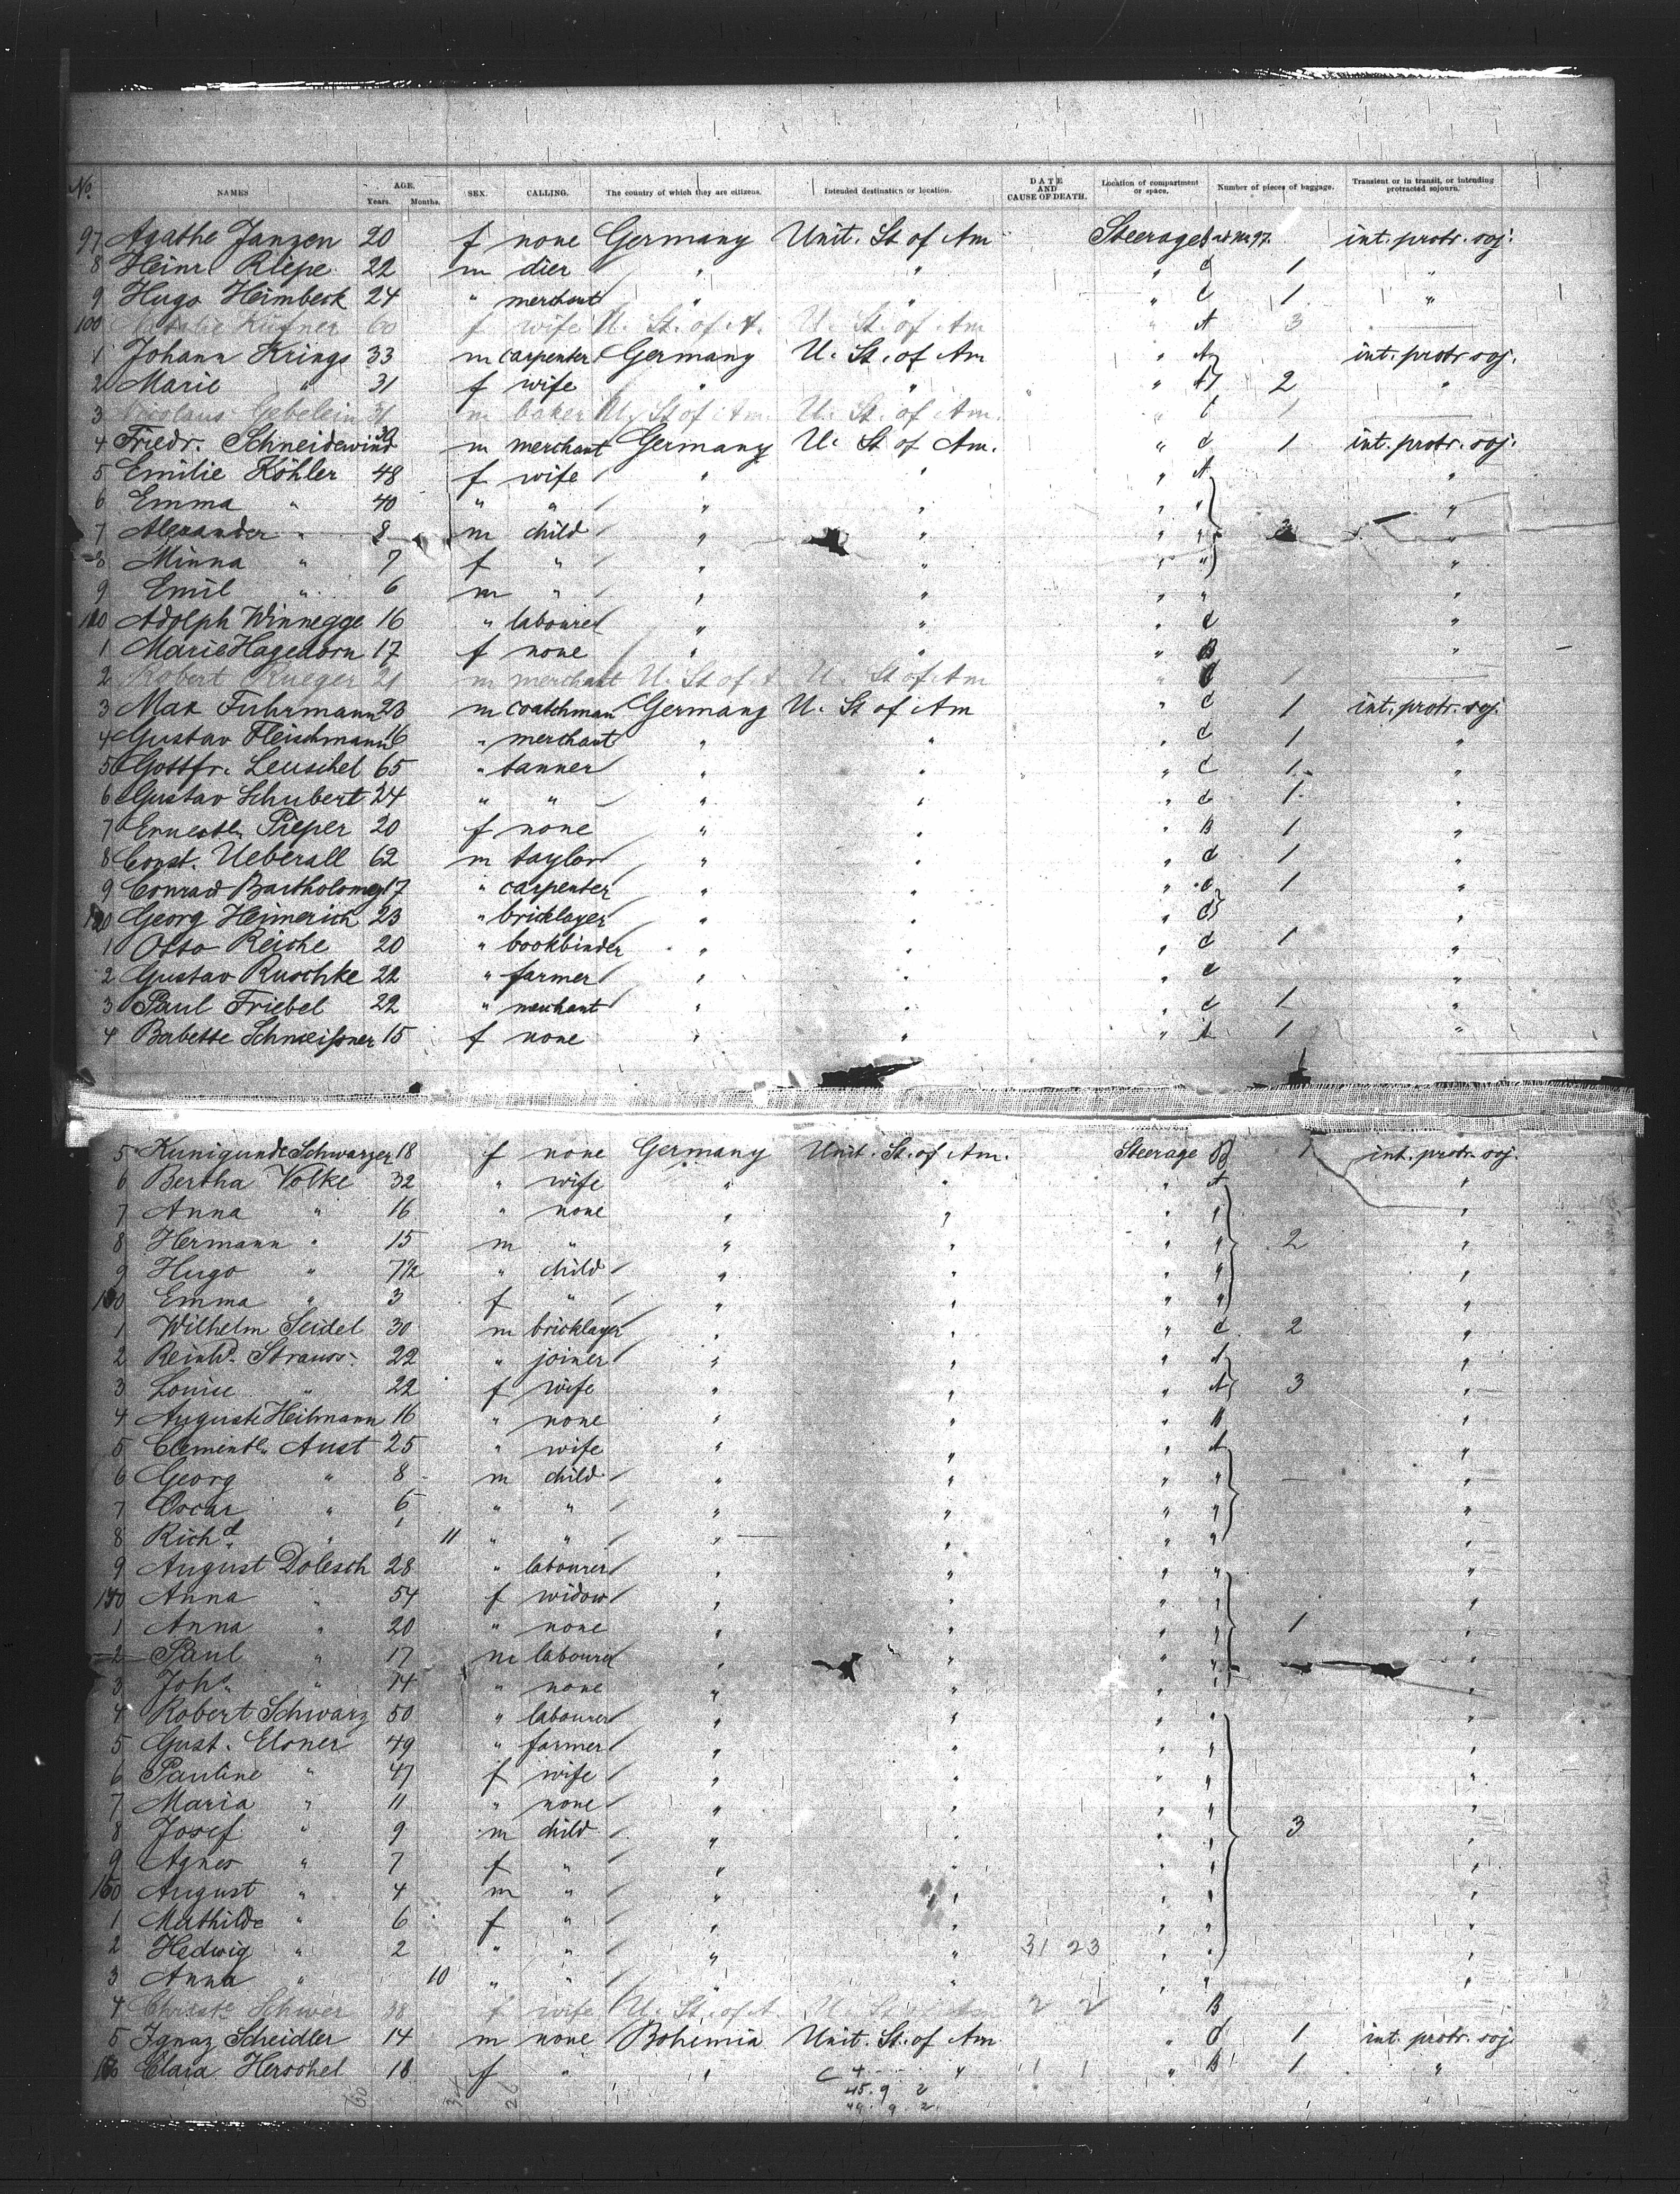 No. NAMES AGE. Years. Months. SEX. CALLING. The country of which they are citizens. Intended destination or location. DATE AND CAUSE OF DEATH. Location of compartment or space. Number of pieces of baggage. Transient or in transit, or intending protracted sojourn.
97 Agathe Janzen 20 f none Germany Unit. St of Am Steerage int. protr. soj.
8 Heinr. Riepe 22 m dier " " " C 1 "
9 Hugo Heimbeck 24 " merchant " " " C 1 "
100 Küfner 60 f wife U. St. of A. U. St. of Am " A 3 —
1 Johann Krings 33 m carpenter Germany U. St. of Am " A int. protr. soj.
2 Marie " 31 f wife " " " A 2 "
3 Nicolaus Gebelein 31 m baker U. St of Am. U. St. of Am. " C 1 —
4 Friedr. Schneidewind 39 m merchant Germany U. St of Am. " C 1 int. protr. soj.
5 Emilie Köhler 48 f wife " " " A "
6 Emma " 40 " " " " " " "
7 Alexander " 8 m child " " " " 3 "
8 Minna " 7 f " " " " " "
9 Emil " 6 m " " " " " "
110 Adolph Winnegge 16 " labourer " " " C "
1 Marie Hagedorn 17 f none " " " B "
2 Robert Krueger 21 m merchant U. St of A U. St of Am " C 1 —
3 Max Fuhrmann 23 m coatchman Germany U. St of Am " C 1 int. protr. soj.
4 Gustav Fleischmann 16 " merchant " " " C 1 "
5 Gottfr. Leuschel 65 " tanner " " " C 1 "
6 Gustav Schubert 24 " " " " " C 1 "
7 Ernestl. Pieper 20 f none " " " B 1 "
8 Const. Ueberall 62 m taylor " " " C 1 "
9 Conrad Bartholomey 17 " carpenter " " " C 1 "
120 Georg Heimerich 23 " bricklayer " " " C "
1 Otto Reiche 20 " bookbinder " " " C 1 "
2 Gustav Ruschke 22 " farmer " " " C "
3 Paul Friebel 22 " merchant " " " C 1 "
4 Babette Schmeißner 15 f none " " " A 1 "
5 Kunigunde Schwarzer 18 f none Germany Unit. St. of Am. Steerage B 1 int. protr. soj.
6 Bertha Volke 32 " wife " " " A "
7 Anna " 16 " none " " " " "
8 Hermann " 15 m " " " " " 2 "
9 Hugo " 7½ " child " " " " "
130 Emma " 3 f " " " " " "
1 Wilhelm Seidel 30 m bricklayer " " " C 2 "
2 Reinhd. Strauss 22 " joiner " " " A "
3 Louise " 22 f wife " " " A 3 "
4 Auguste Heilmann 16 " none " " " B "
5 Clementl. Aust 25 " wife " " " A "
6 Georg " 8 m child " " " " — "
7 Oscar " 5 " " " " " " "
8 Richd. " 11 " " " " " " "
9 August Dolesch 28 " labourer " " " " "
140 Anna " 54 f widow " " " " "
1 Anna " 20 " none " " " " 1 "
2 Paul " 17 m labourer " " " " "
3 Joh. " 14 " none " " " " "
4 Robert Schwarz 50 " labourer " " " " "
5 Gust. Elsner 49 " farmer " " " " "
6 Pauline " 47 f wife " " " " "
7 Maria " 11 " none " " " " "
8 Josef " 9 m child " " " " 3 "
9 Agnes " 7 f " " " " " "
150 August " 4 m " " " " " "
1 Mathilde " 6 f " " " " " "
2 Hedwig " 2 " " " " 31 23 " " "
3 Anna " 10 " " " " " "
4 Schwer 38 f wife U. St. of A 2 2 B
5 Ignaz Scheidler 14 m none Bohemia Unit. St. of Am " C 1 int. protr. soj.
Clara Herschel 18 f " " " 1 1 " B 1 "
45. 9 2
49. 9. 2.